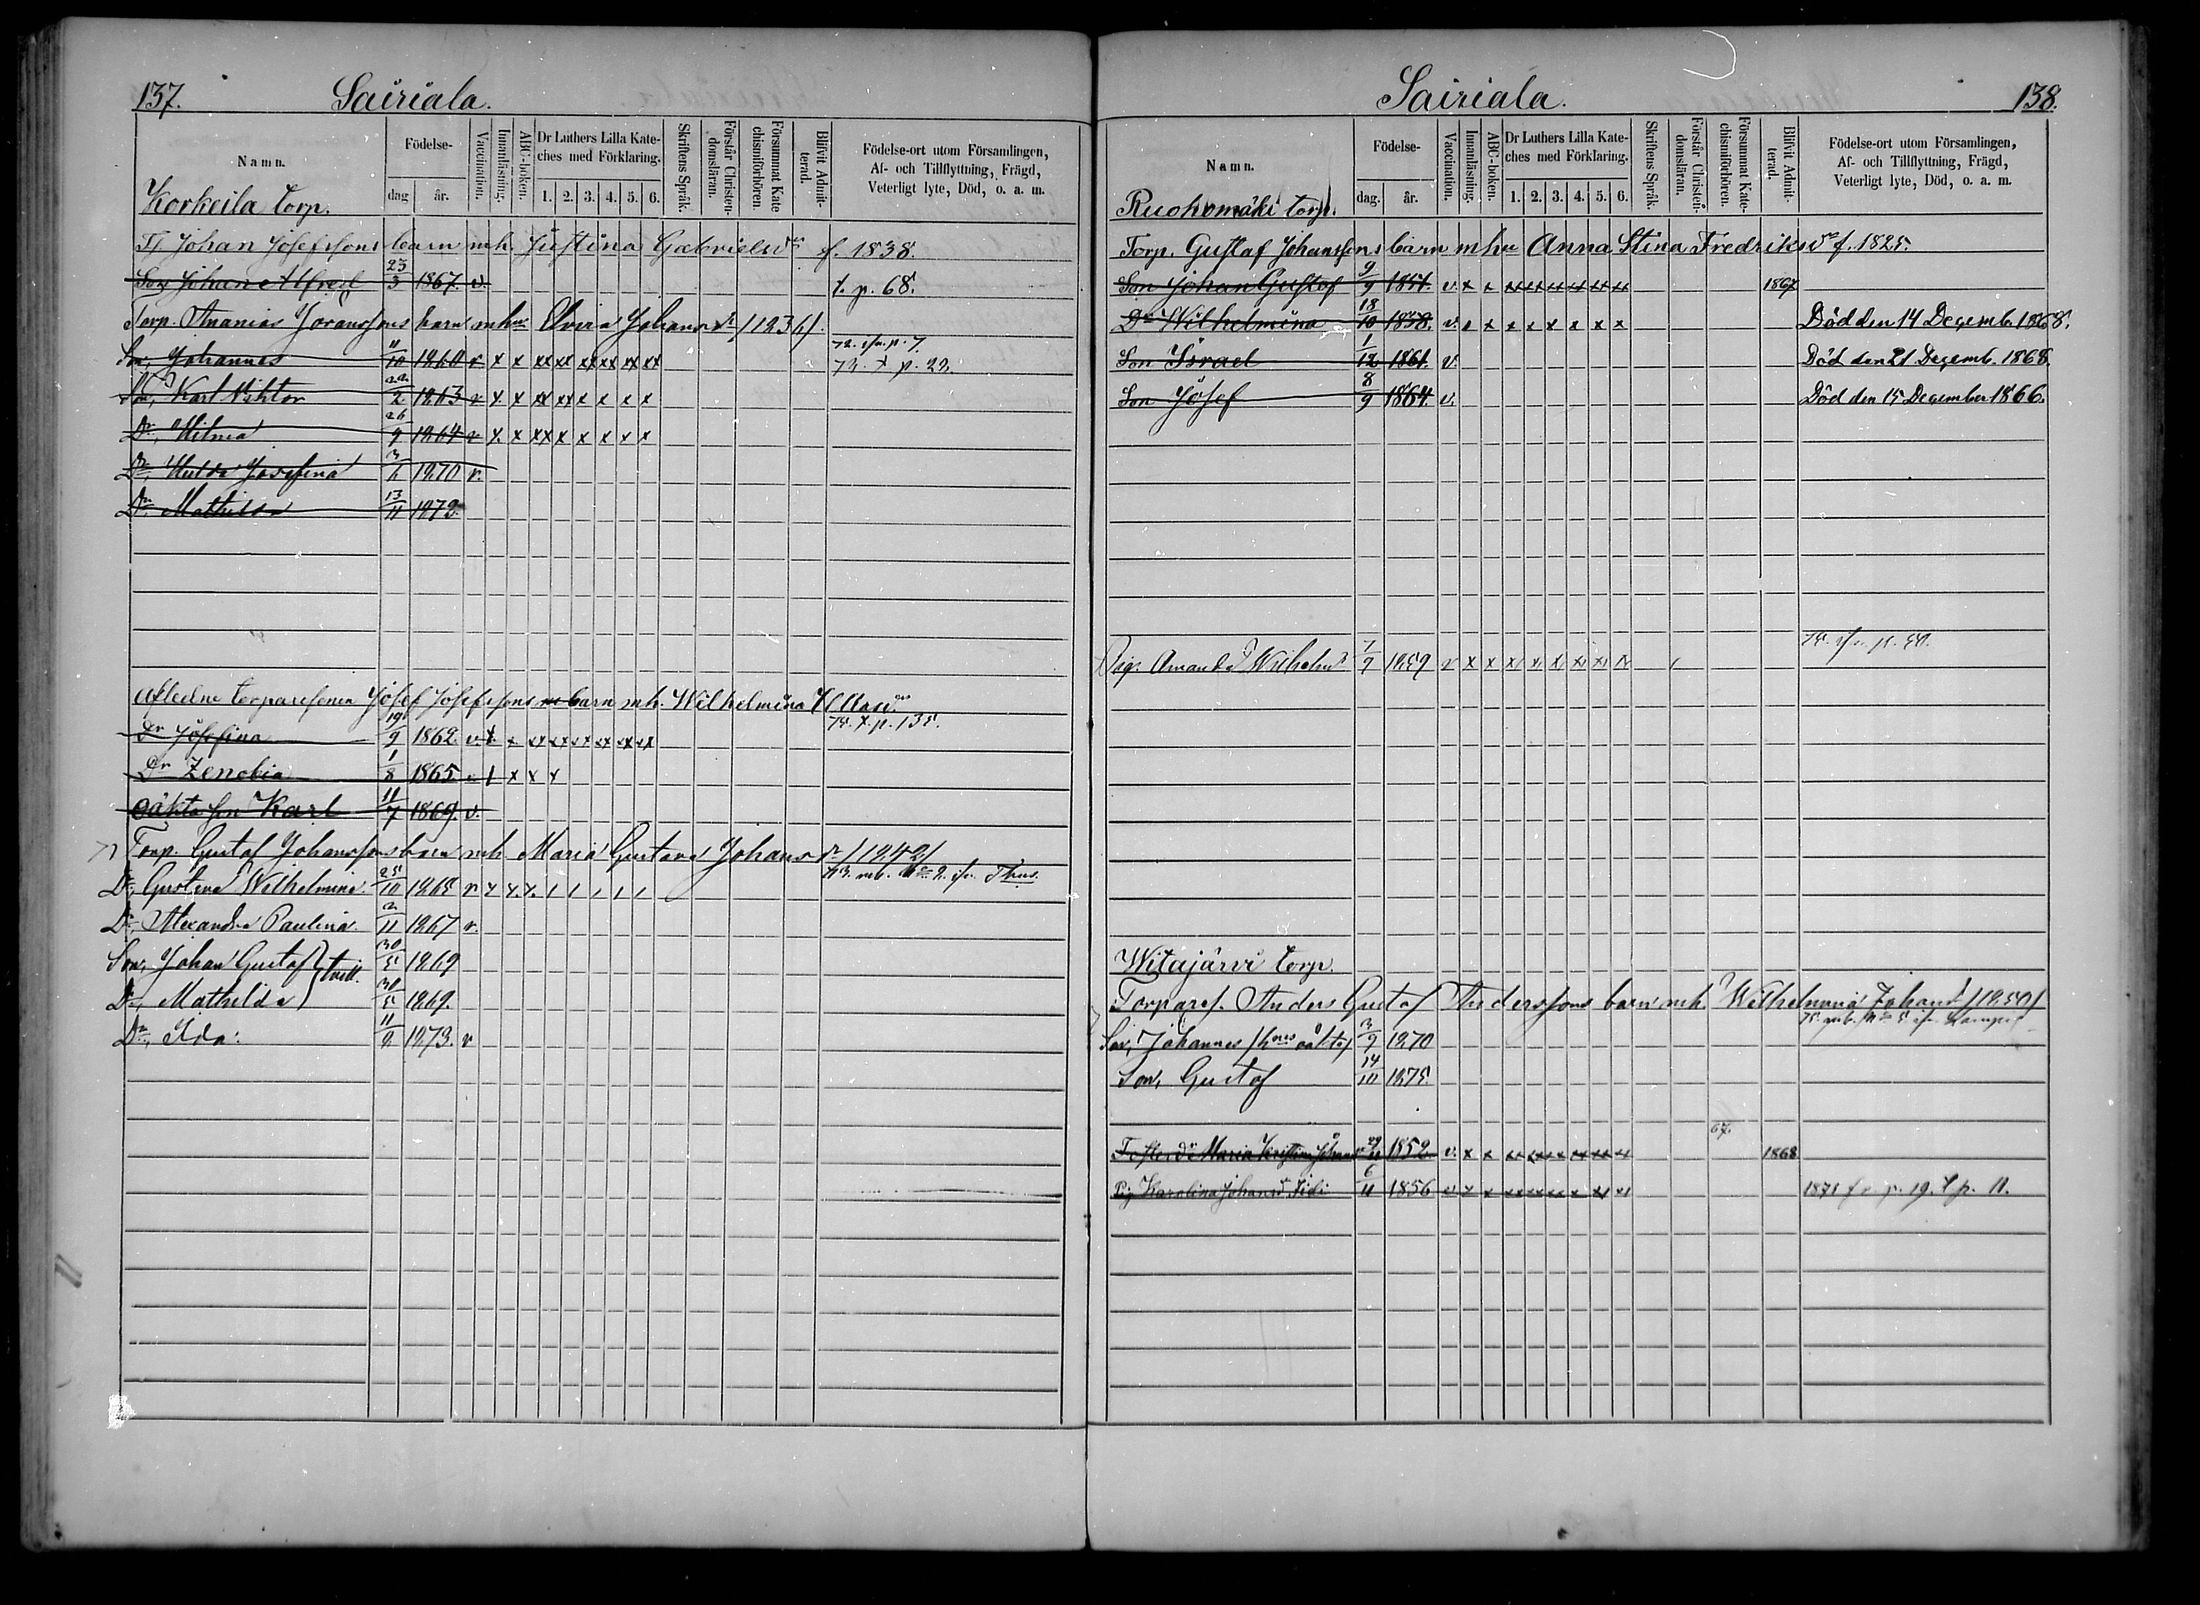 137. Sairiala.
Namn. Födelse- dag år. Vaccination. Innanläsning. ABC-boken. Dr Luthers Lilla Kateches med Förklaring. 1. 2. 3. 4. 5. 6. Skriftens Språk. Förstår Christendomsläran. Försummat Katechismiförhören. Blifvit Admitterad. Födelse-ort utom Församlingen, Af- och Tillflyttning, Frägd, Veterligt lyte, Död, o. a. m.
Korkeila torp.
Johan Josefssons barn mh. Justina Gabrielsdr f. 1838.
Son Johan Alfred 23/3 1867. v. t. p. 68.
Torp. Ananias barn mhu Johansdr
72. ifr. p. 7.
Son, Johannes 11/10 1860 v x x xx xx xx xx xx xx 73. t. p. 23.
Son, Karl Viktor 22/2 1863 v x x xx xx x x x x
Dr, Wilma 26/9 1864 v x x xx x x x x x
Dr, Hulda Josefina 3/6 1870 v.
Dr, Mathilda 13/11 1873.
Afledne torparesonen Josef Josefssons barn mh. Wilhelmina
75. t. p. 135.
Dr Josefina 19/9 1862. v. x. x xx xx xx xx xx xx
Dr Zenobia 1/8 1865 v x x x
oäkta son Karl 11/7 1869. v.
Torp. Gustaf Johanssons barn mh. Maria Gustava Johansdr /1842/
Dr, Gustava Wilhelmina 25/10 1865 v x x x / / / / / /
Dr, Alexandra Paulina 2/11 1867 v.
Son, Johan Gustaf } tvill. 30/5 1869
Dr, Mathilda 30/5 1869.
Dr, Ida. 11/2 1873. v
Sairiala. 138.
Namn. Födelse- dag. år. Vaccination. Innanläsning. ABC-boken. Dr Luthers Lilla Kateches med Förklaring. 1. 2. 3. 4. 5. 6. Skriftens Språk. Förstår Christendomsläran. Försummat Katechismiförhören. Blifvit Admitterad. Födelse-ort utom Församlingen, Af- och Tillflyttning, Frägd, Veterligt lyte, Död, o. a. m.
Ruohomäki torp.
Torp. Gustaf Johanssons barn mhu Anna Stina Fredriksdr f. 1825.
Son Johan Gustaf 9/9 1851. v. x x xx xx xx xx xx xx 1867
Dr Wilhelmina 18/10 1858. v. x x x x x x x x Död den 14 Decemb. 1868.
Son Israel 1/12 1861. v. Död den 21 Decemb. 1868.
Son Josef 8/9 1864. v. Död den 15 December 1866.
75. ifr. p.
Pig. Amanda Wilhelmsdr 7/9 1859 v x x x x x x x x /
Witajärvi torp.
Torpares. Anders Gustaf Anderssons barn mh. Wilhelmina Johansdr /1850/
Son, Johannes /hnes oäkta/ 3/9 1870
Son, Gustaf 14/10 1875.
67.
Fosterdr Maria Kristina 1852. v. x x xx xx x xx xx xx 1868
Pig Karolina Johansdr 6/11 1856 v x x xx xx xx x xx xx 1871 fr p. 19. t p. 11.